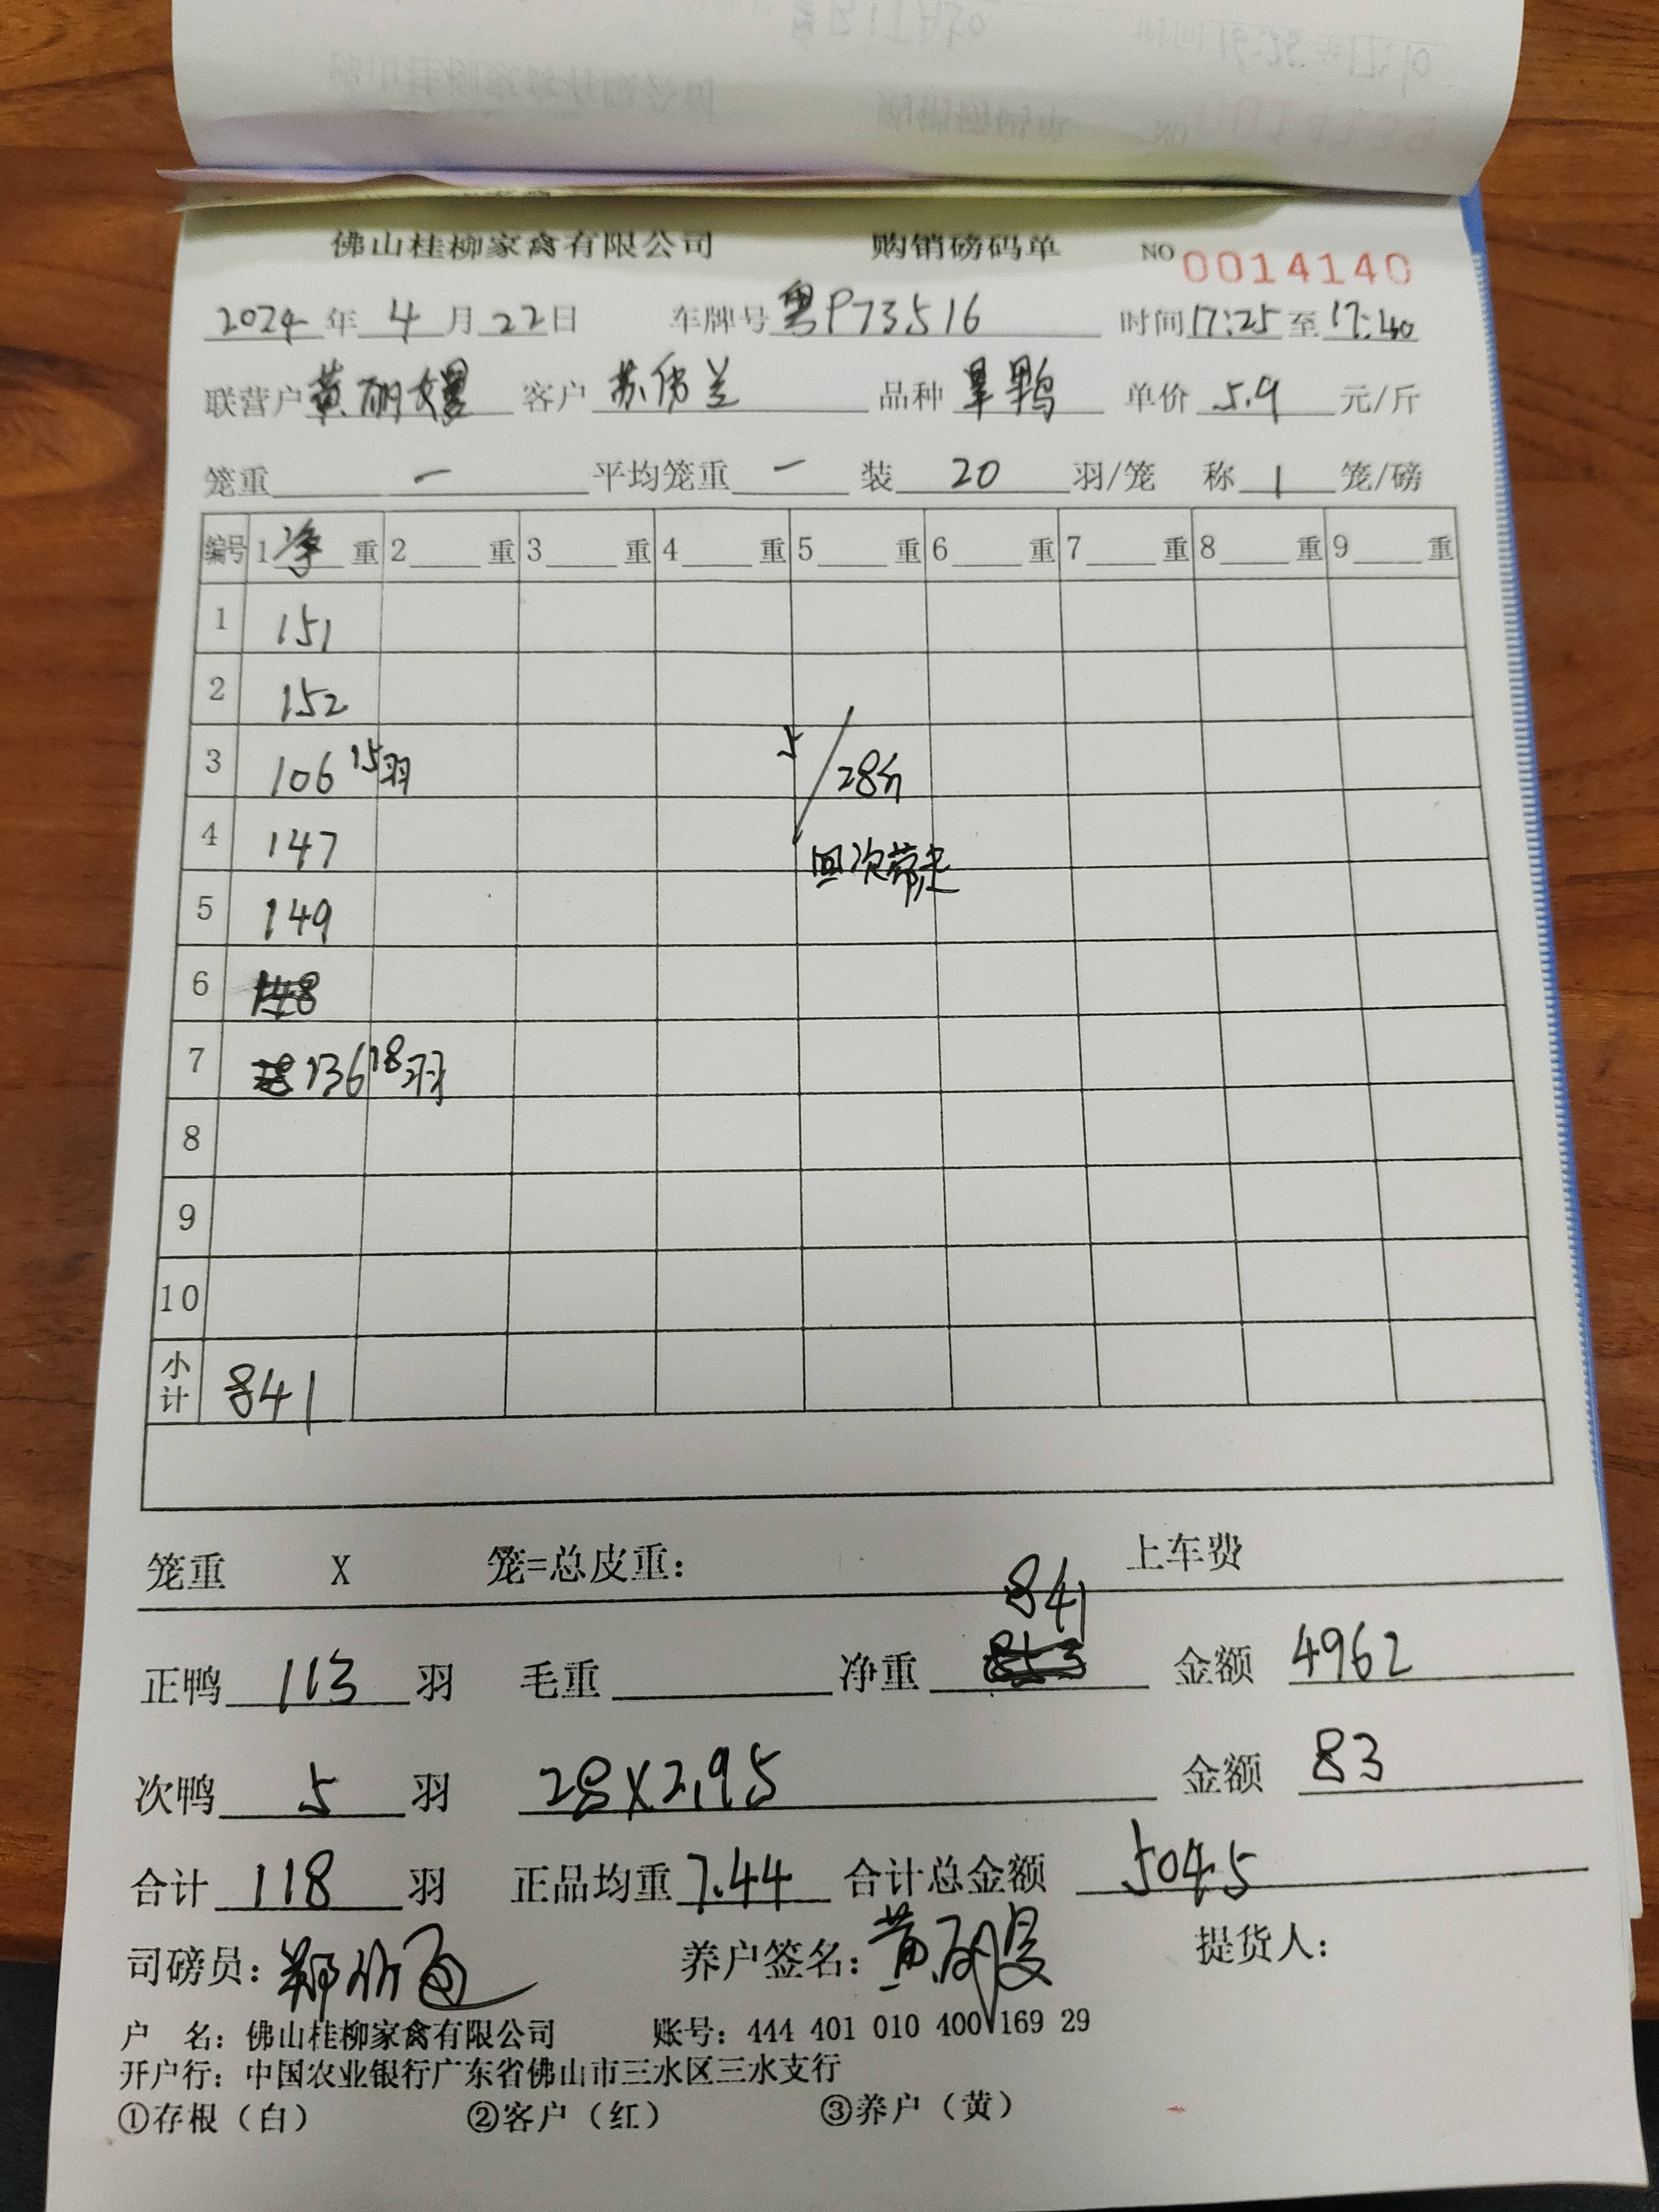 佛山桂柳家禽有限公司 购销磅码单 NO 0014140
2024 年 4 月 22 日 车牌号 粤P73516 时间 17:25 至 17:40
联营户 黄丽嫚 客户 苏伟兰 品种 旱鸭 单价 5.9 元/斤
笼重 一 平均笼重 一 装 20 羽/笼 称 1 笼/磅
编号 1 净 重 2 重 3 重 4 重 5 重 6 重 7 重 8 重 9 重
1 151
2 152
3 106 15羽 5/28斤
4 147 回次带走
5 149
6 148
7 136 18羽
8
9
10
小计 841
笼重 X 笼=总皮重: 上车费
正鸭 113 羽 毛重 净重 841 金额 4962
次鸭 5 羽 28X2.95 金额 83
合计 118 羽 正品均重 7.44 合计总金额 5045
司磅员: 养户签名: 黄丽嫚 提货人:
户 名: 佛山桂柳家禽有限公司 账号: 444 401 010 400 169 29
开户行: 中国农业银行广东省佛山市三水区三水支行
①存根（白） ②客户（红） ③养户（黄）